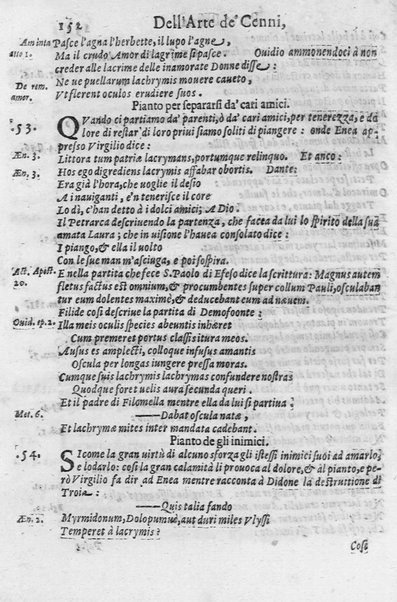 152 Dell'Arte de' Cenni,
Aminta Pasce l'agna l'herbette, il lupo l'agne,
atto 1. Ma il crudo Amor di lagrime si pasce. Ouidio ammonendoci à non
creder alle lacrime delle inamorate Donne disse:
De rem. Ne puellarum lachrymis moueare caueto,
amor. Vt flerent oculos erudiere suos.
Pianto per separarsi da' cari amici.
.53. QVando ci partiamo da' parenti, ò da' cari amici, per tenerezza, e do
lore di restar' di loro priui siamo soliti di piangere: onde Enea ap-
presso Virgilio dice:
Æn. 3. Littora tum patriæ lacrymans, portumque relinquo. Et anco:
Æn. 3. Hos ego digrediens lacrymis affabar obortis. Dante:
Era già l'hora, che uoglie il desio
A i nauiganti, e'n tenerisce il core
Lo dì, c'han detto à i dolci amici; A Dio.
Il Petrarca descriuendo la partenza, che facea da lui lo spirito della sua
amata Laura; che in uisione l'hauea consolato dice:
I piango, & ella il uolto
Con le sue man m'asciuga, e poi sospira.
Act. Apost. E nella partita che fece S. Paolo di Efeso dice la scrittura: Magnus autem
20. fletus factus est omnium, & procumbentes super collum Pauli, osculaban
tur eum dolentes maximè, & deducebant eum ad nauem.
Filide così descriue la partita di Demofoonte:
Ouid. ep. 2. Illa meis oculis species abeuntis inhæret
Cum premeret portus classis itura meos.
Ausus es amplecti, colloque infusus amantis
Oscula per longas iungere pressa moras.
Cumque suis lachrymis lachrymas confundere nostras
Quodque foret uelis aura secunda queri.
Et il padre di Filomella mentre ella da lui si partiua:
Met. 6. —Dabat oscula natæ,
Et lachrymæ mites inter mandata cadebant.
Pianto de gli inimici.
.54. SI come la gran uirtù di alcuno sforza gli istessi inimici suoi ad amarlo,
e lodarlo: così la gran calamità li prouoca al dolore, & al pianto, e pe-
rò Virgilio fa dir ad Enea mentre racconta à Didone la destruttione di
Troia:
—Quis talia fando
Æn. 2. Myrmidonum, Dolopumuè, aut duri miles Vlyssi
Temperet à lacrymis?
Così